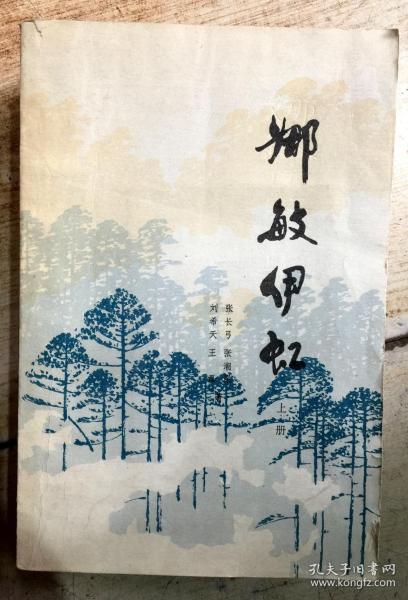 娜敏伊虹
上册
张长弓 张湘
刘希天 王
著
孔夫子旧书网
www.kongfz.com